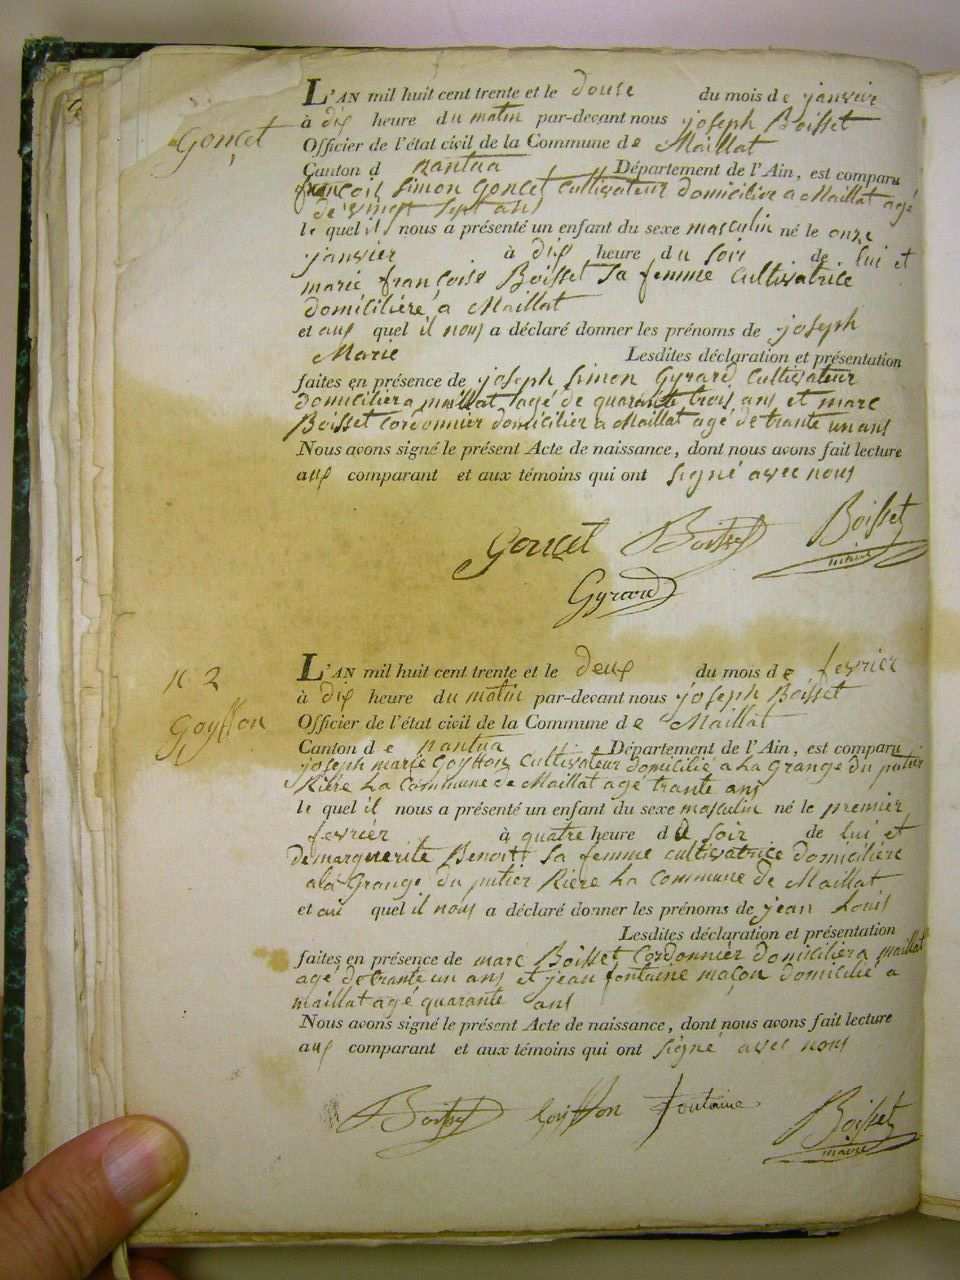 Gonçet
L'AN mil huit cent trente et le douse du mois de janvier
à dix heure du matin par-devant nous joseph Boisset
Officier de l'état civil de la Commune de Maillat
Canton d nantua Département de l'Ain, est comparu
françois Simon Goncet Cultivateur domicilier a Maillat agé
de vingt Sept ans
le quel il nous a présenté un enfant du sexe masculin né le onze
janvier à dix heure du soir de lui et
marie françoise Boisset Sa femme Cultivatrice
domiciliére a Maillat
et aux quel il nous a déclaré donner les prénoms de joseph
Marie Lesdites déclaration et présentation
faites en présence de joseph Simon Gyrard Cultivateur
domicilier a maillat agé de quarante trois ans et marc
Boisset Cordonnier domicilier a Maillat agé de trante un ans
Nous avons signé le présent Acte de naissance, dont nous avons fait lecture
aux comparant et aux témoins qui ont signé avec nous
Goncet Boisset Boisset
maire
Gyrard
n. 2
Goyffon
L'AN mil huit cent trente et le deux du mois de fevrier
à dix heure du matin par-devant nous joseph Boisset
Officier de l'état civil de la Commune de Maillat
Canton de nantua Département de l'Ain, est comparu
joseph marie Goyffon Cultivateur domicilié a La Grange du putier
Riére La Commune de Maillat agé trante ans
le quel il nous a présenté un enfant du sexe masculin né le premier
fevrier à quatre heure du soir de lui et
de marguerite Benoit Sa femme cultivatrice domiciliére
a la Grange du putier Riére La Commune de Maillat
et au quel il nous a déclaré donner les prénoms de jean Louis
Lesdites déclaration et présentation
faites en présence de marc Boisset Cordonnier domicilier a maillat
agé de trante un ans et jean fontaine maçon domicilié a
maillat agé quarante ans
Nous avons signé le présent Acte de naissance, dont nous avons fait lecture
aux comparant et aux témoins qui ont signé avec nous
Boisset Goiffon fontaine Boisset
maire